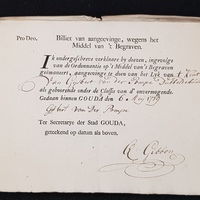 Pro Deo.
Billiet van aangeevinge, wegens het
Middel van 't Begraven.
Ik ondergeschreve verklaare by deezen, ingevolge
van de Ordonnantie op 't Middel van 't Begraven
geëmaneert, aangeevinge te doen van het Lyk van 't Kint
Van Gijsbert van der
als gehoorende onder de Classis van d' onvermogende.
Gedaan binnen GOUDA den 6 May
Gijsbert van Der
Ter Secretarye der Stad GOUDA,
geteekent op datum als boven.